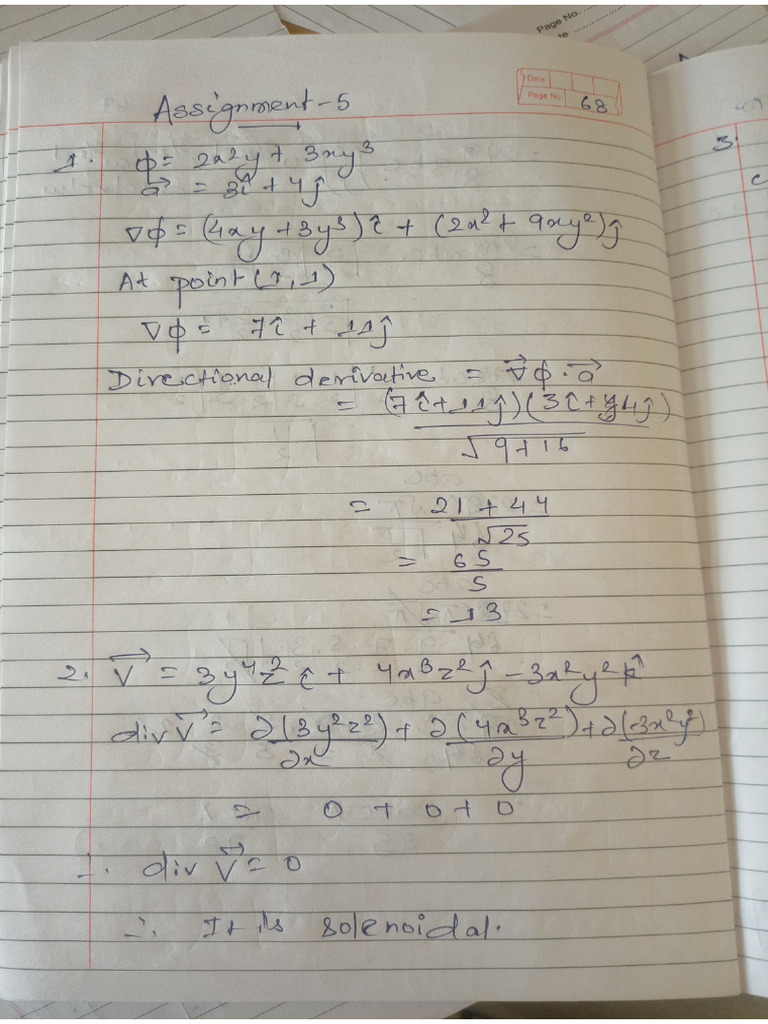 Page No.
Date
Page No. 68
Assignment-5
1. ϕ = 2x2y + 3xy³
a⃗ = 3î + 4ĵ
∇ϕ = (4xy + 3y³) î + (2x² + 9xy²) ĵ
At point (1, 1)
∇ϕ = 7î + 11ĵ
Directional derivative = ∇⃗ϕ · a⃗
= (7î + 11ĵ) (3î + 4ĵ)
√9+16
= 21 + 44
√25
= 65
5
= 13
2. V⃗ = 3y⁴z² î + 4x³z² ĵ - 3x²y² k̂
div V⃗ = ∂(3y²z²) + ∂(4x³z²) + ∂(-3x²y²)
∂x ∂y ∂z
= 0 + 0 + 0
∴ div V⃗ = 0
∴ It is solenoidal.
3.